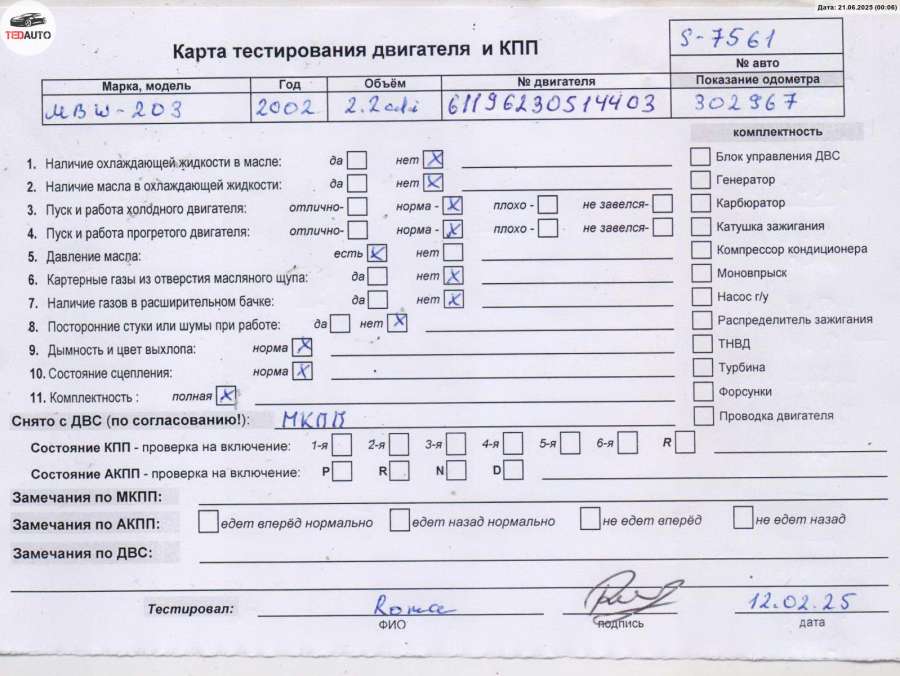 Дата: 21.06.2025 (00:06)
TEDAUTO
Карта тестирования двигателя и КПП
S-7561
№ авто
Марка, модель Год Объём № двигателя Показание одометра
MB W-203 2002 2.2cdi 61196230514403 302967
комплектность
1. Наличие охлаждающей жидкости в масле: да нет X
Блок управления ДВС
2. Наличие масла в охлаждающей жидкости: да нет X
Генератор
3. Пуск и работа холодного двигателя: отлично- норма - X плохо - не завелся-
Карбюратор
4. Пуск и работа прогретого двигателя: отлично- норма - X плохо - не завелся-
Катушка зажигания
5. Давление масла: есть X нет
Компрессор кондиционера
6. Картерные газы из отверстия масляного щупа: да нет X
Моновпрыск
7. Наличие газов в расширительном бачке: да нет X
Насос г/у
8. Посторонние стуки или шумы при работе: да нет X
Распределитель зажигания
9. Дымность и цвет выхлопа: норма X
ТНВД
10. Состояние сцепления: норма X
Турбина
11. Комплектность : полная X
Форсунки
Снято с ДВС (по согласованию!): МКПП
Проводка двигателя
Состояние КПП - проверка на включение: 1-я 2-я 3-я 4-я 5-я 6-я R
Состояние АКПП - проверка на включение: P R N D
Замечания по МКПП:
Замечания по АКПП: едет вперёд нормально едет назад нормально не едет вперёд не едет назад
Замечания по ДВС:
Тестировал: Roma 12.02.25
ФИО подпись дата